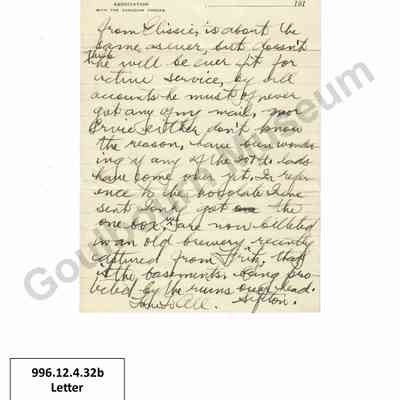 ASSOCIATION
WITH THE CANADIAN FORCES
191
from Clissie, is about the
same as ever, but doesn't
think he will be ever fit for
active service, by all
accounts he must of never
got any of my mail, nor
Ervie either don't know
the reason, have been wonder
ing if any of the lads
have come over yet. In refer
ence to the chocolate June
sent I only got the
one box. We are now billeted
in an old brewery recently
captured from Fritz, that
is the basements, being pro
tected by the ruins over head.
Sifton.
Goulbourn Museum
996.12.4.32b
Letter